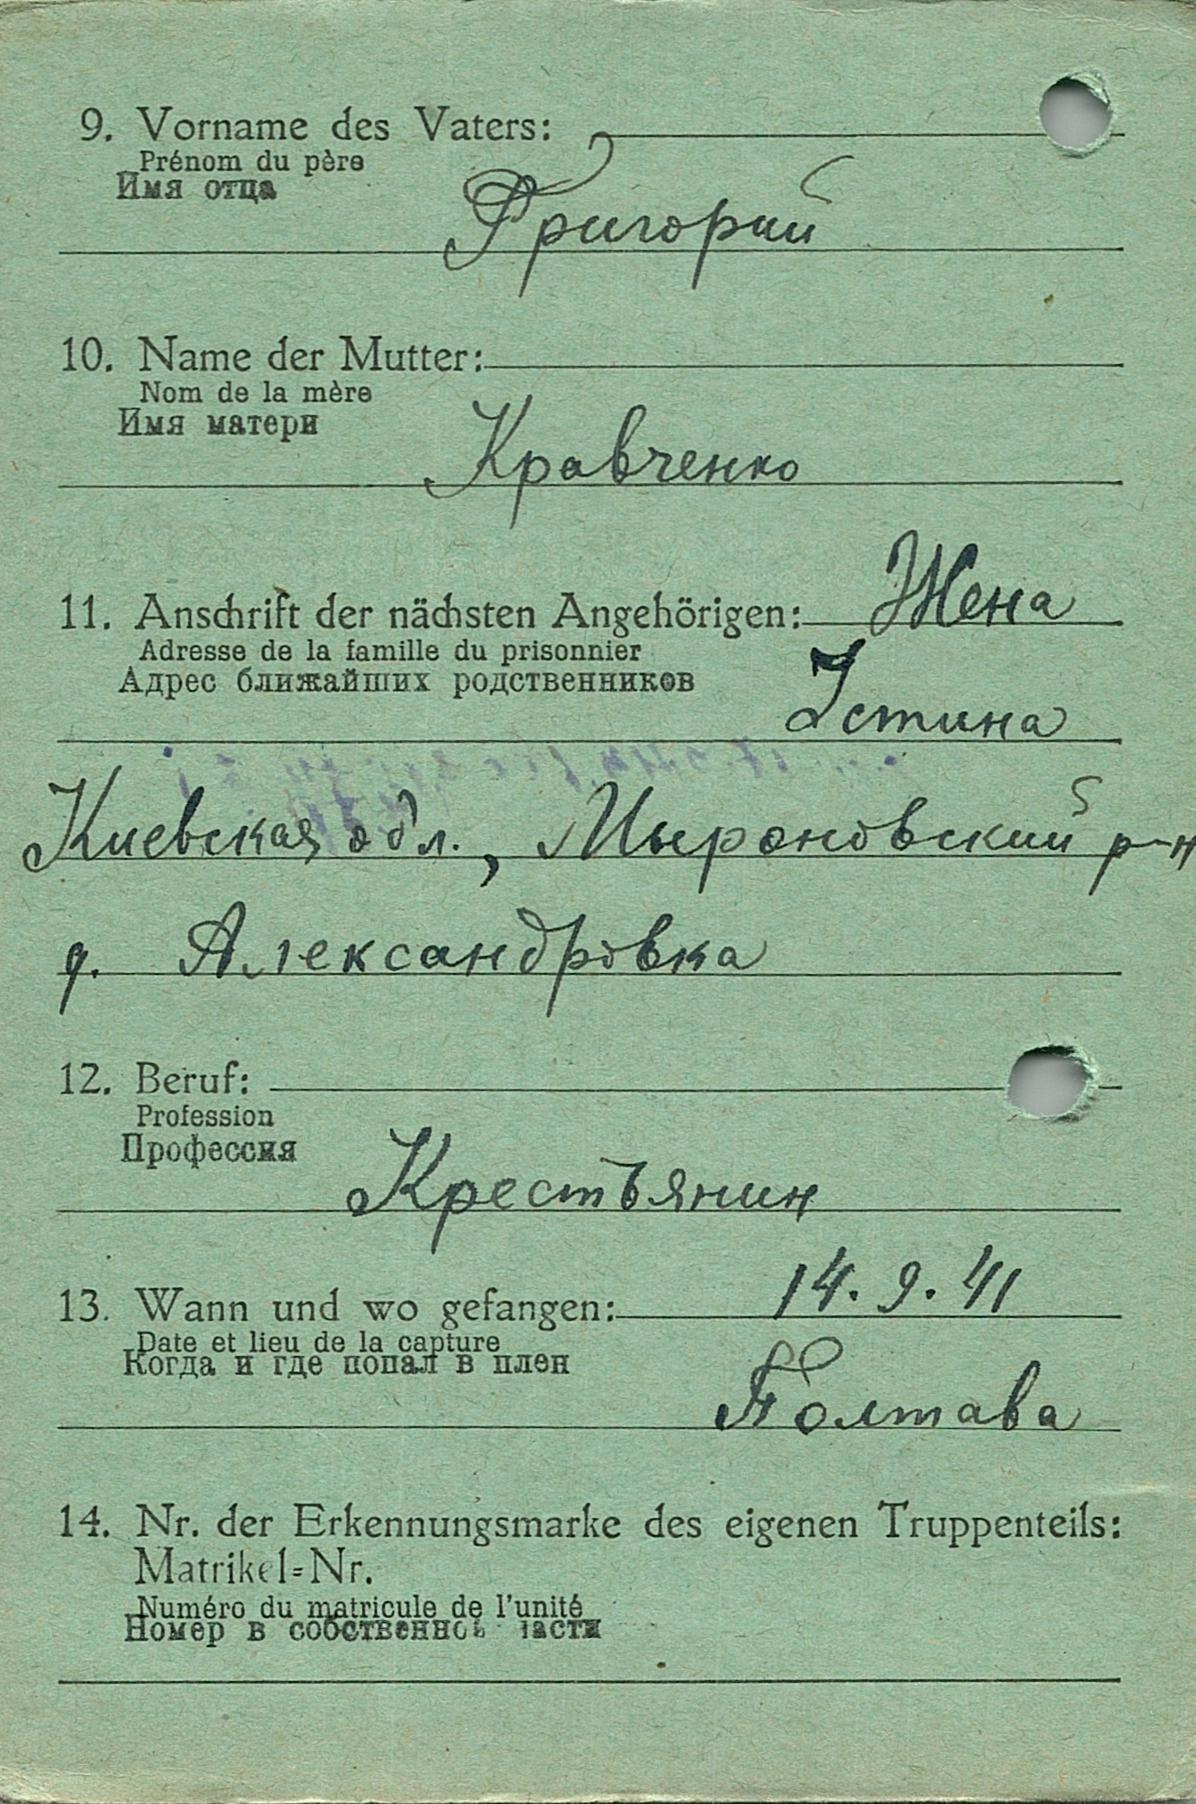 9. Vorname des Vaters:
Prénom du père
Имя отца
Григорий
10. Name der Mutter:
Nom de la mère
Имя матери
Кравченко
11. Anschrift der nächsten Angehörigen: Жена
Adresse de la famille du prisonnier
Адрес ближайших родственников
Устина
Киевская обл., Мыроновский р-н
д. Александровка
12. Beruf:
Profession
Профессия
Крестьянин
13. Wann und wo gefangen: 14.9.41
Date et lieu de la capture
Когда и где попал в плен
Полтава
14. Nr. der Erkennungsmarke des eigenen Truppenteils:
Matrikel=Nr.
Numéro du matricule de l'unité
Номер в собственной части